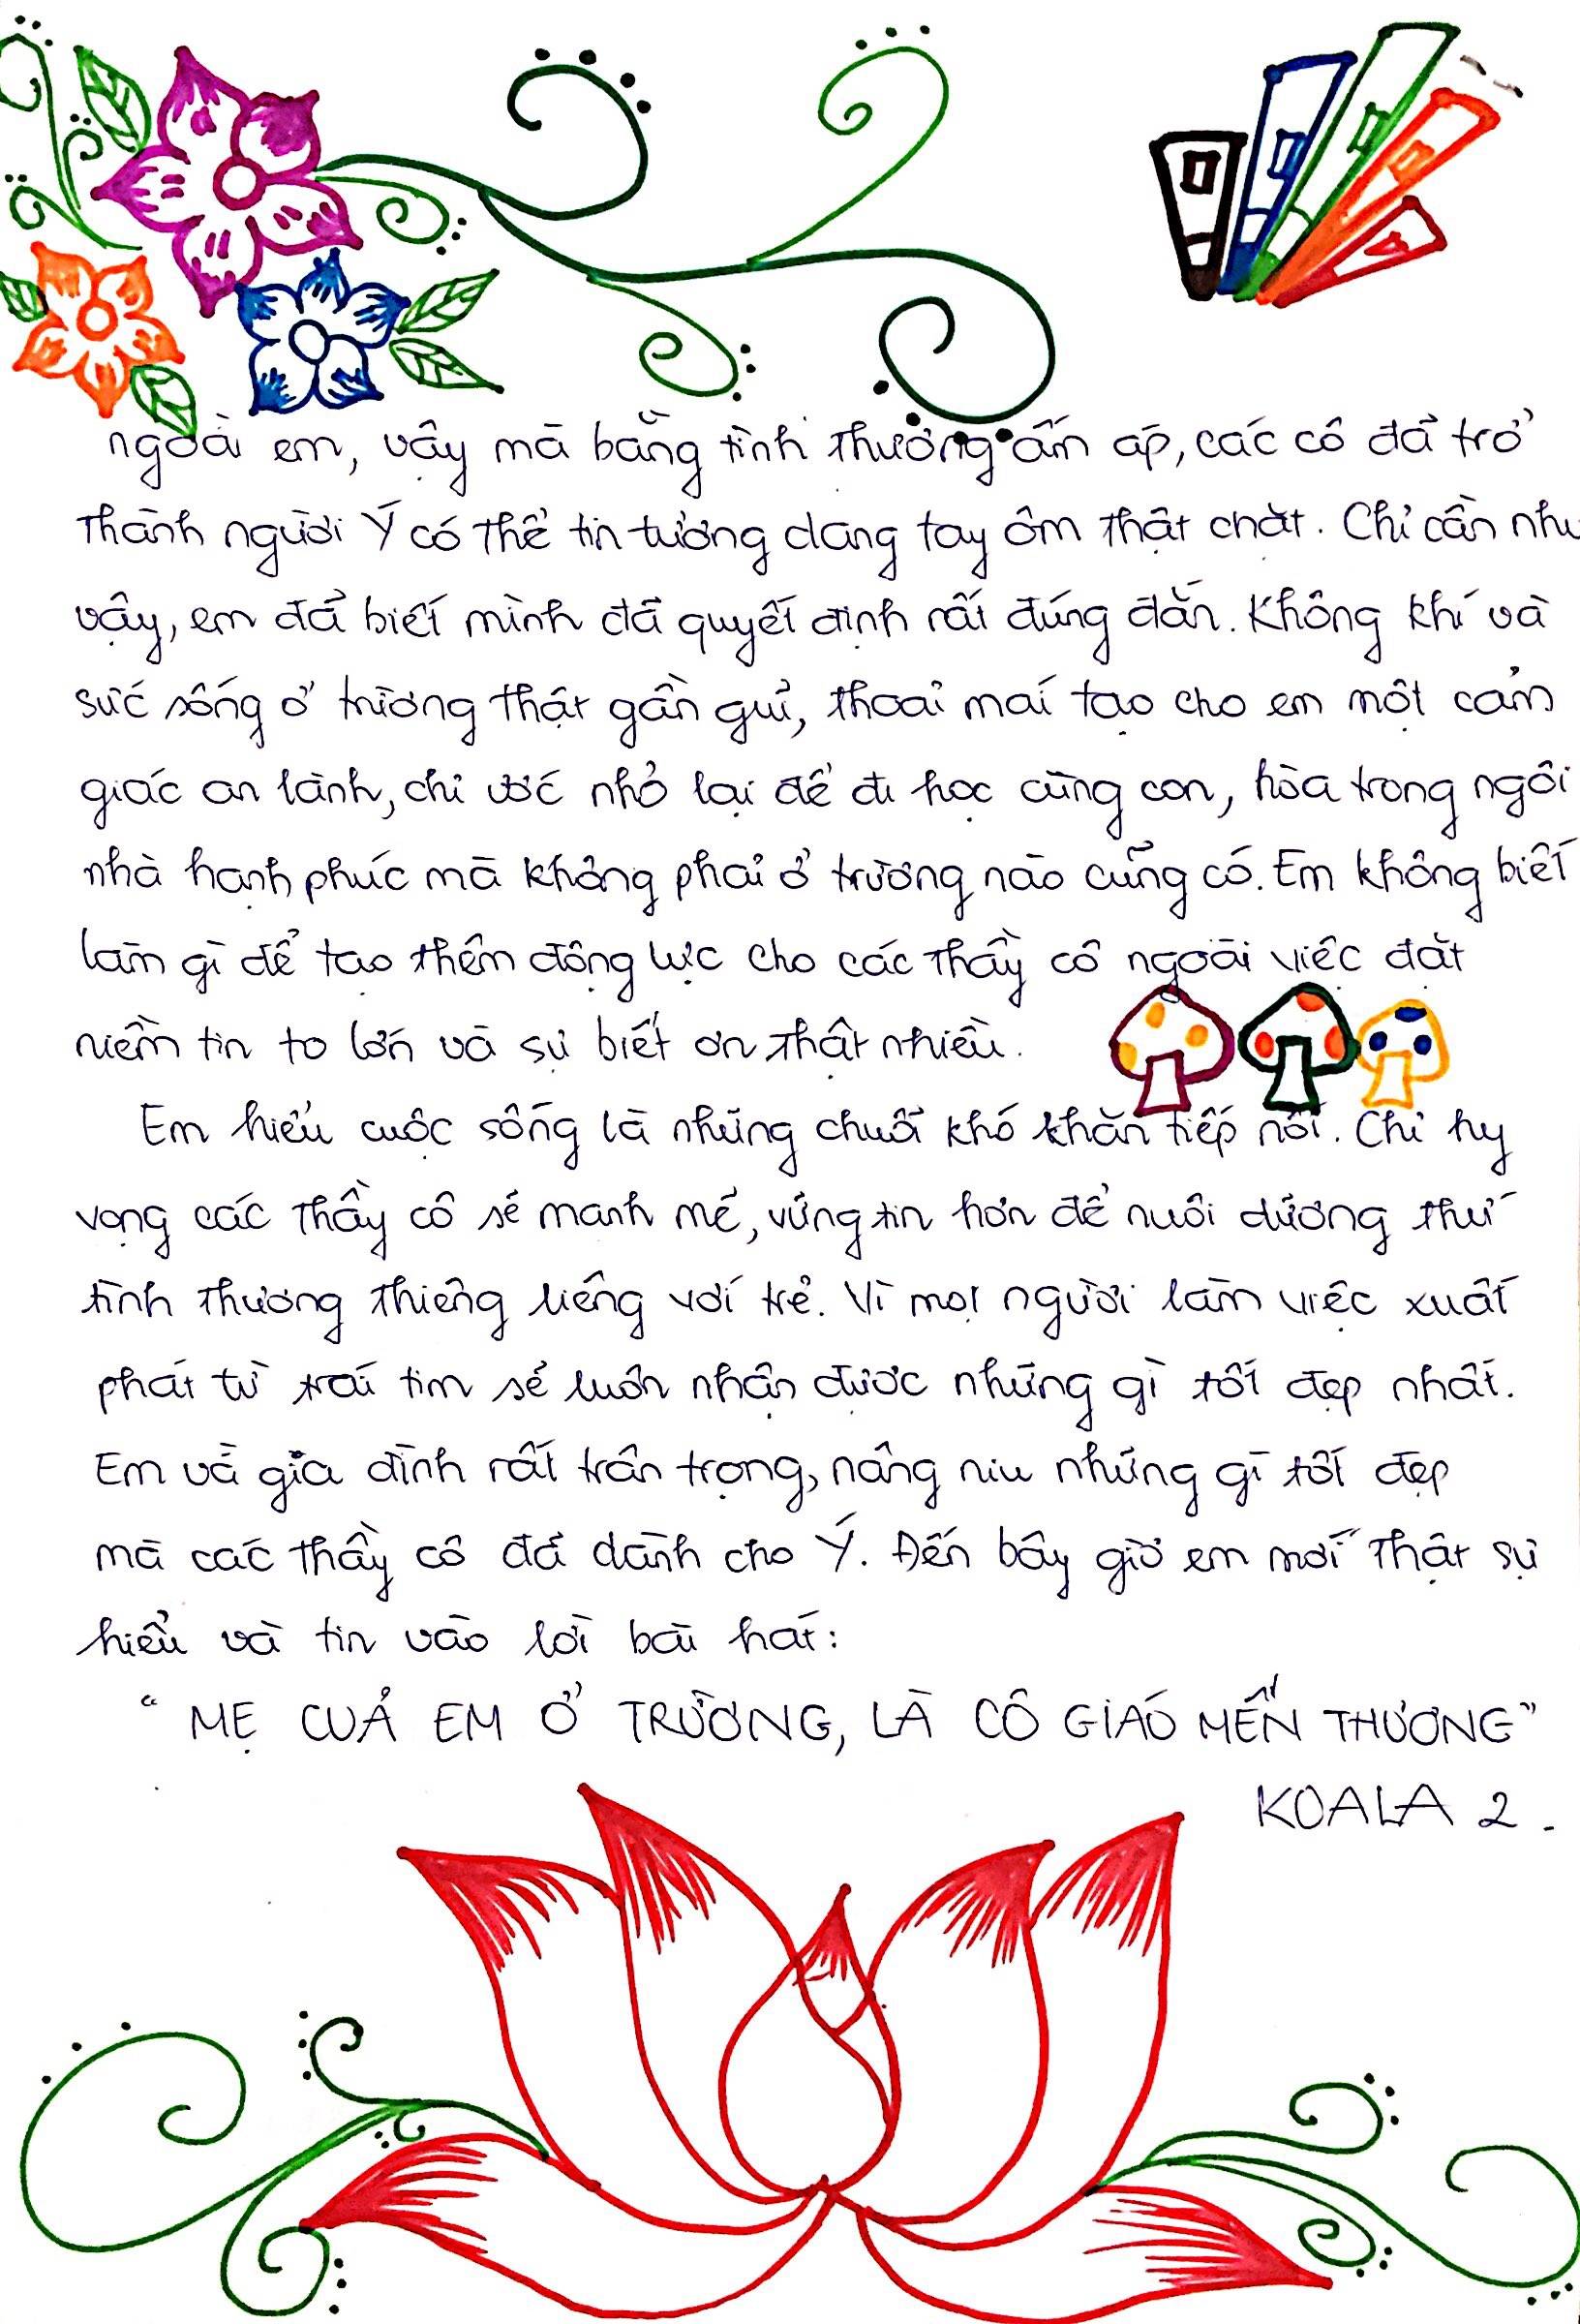 ngoài em, vậy mà bằng tình thương ấm áp, các cô đã trở
thành người Ý có thể tin tưởng dang tay ôm thật chặt. Chỉ cần như
vậy, em đã biết mình đã quyết định rất đúng đắn. Không khí và
sức sống ở trường thật gần gũi, thoải mái tạo cho em một cảm
giác an lành, chỉ ước nhỏ lại để đi học cùng con, hòa trong ngôi
nhà hạnh phúc mà không phải ở trường nào cũng có. Em không biết
làm gì để tạo thêm động lực cho các thầy cô ngoài việc đặt
niềm tin to lớn và sự biết ơn thật nhiều.
Em hiểu cuộc sống là những chuỗi khó khăn tiếp nối. Chỉ hy
vọng các thầy cô sẽ mạnh mẽ, vững tin hơn để nuôi dưỡng thứ
tình thương thiêng liêng với trẻ. Vì mọi người làm việc xuất
phát từ trái tim sẽ luôn nhận được những gì tốt đẹp nhất.
Em và gia đình rất trân trọng, nâng niu những gì tốt đẹp
mà các thầy cô đã dành cho Ý. Đến bây giờ em mới thật sự
hiểu và tin vào lời bài hát:
"MẸ CUẢ EM Ở TRƯỜNG, LÀ CÔ GIÁO MẾN THƯƠNG"
KOALA 2.